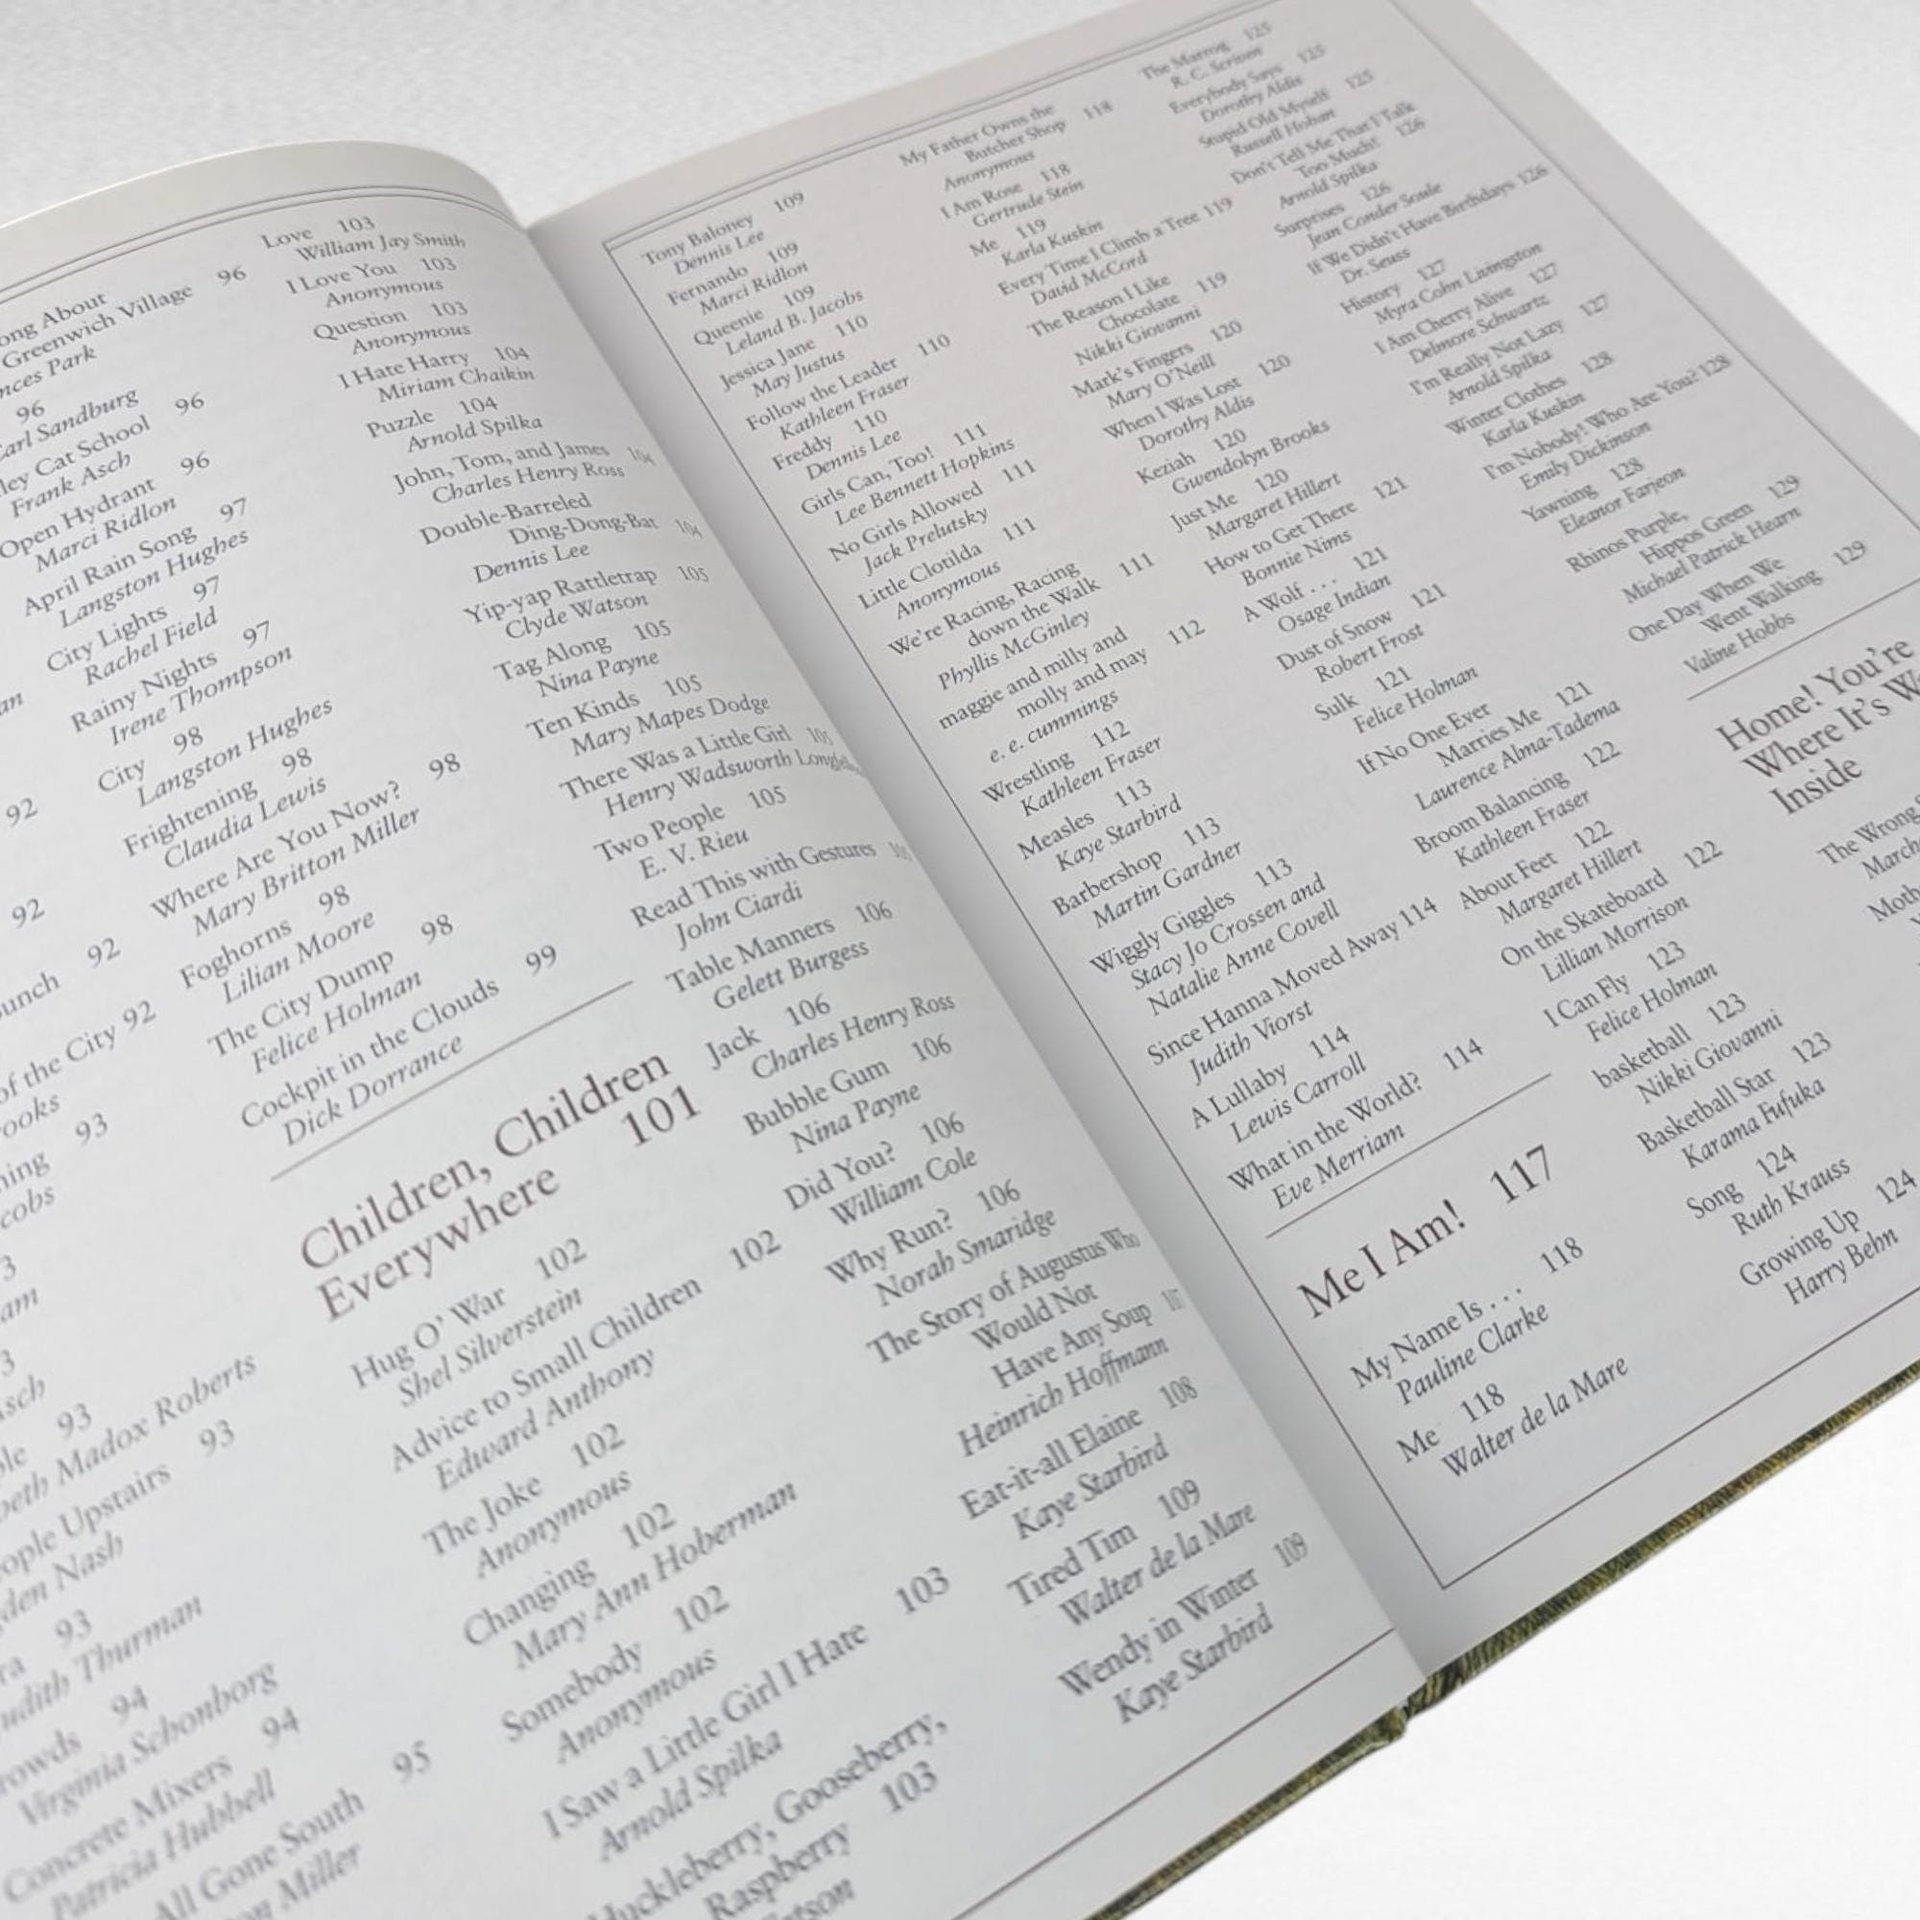 ong About
Greenwich Village 96
nces Park
96
Carl Sandburg
ley Cat School 96
Frank Asch
Open Hydrant 96
Marci Ridlon
April Rain Song 97
Langston Hughes
City Lights 97
Rachel Field
Rainy Nights 97
Irene Thompson
City 98
Langston Hughes
Frightening 98
Claudia Lewis
Where Are You Now? 98
Mary Britton Miller
Foghorns 98
Lilian Moore
The City Dump 98
Felice Holman
Cockpit in the Clouds 99
Dick Dorrance
an
92
92
unch 92
of the City 92
ooks
93
ning
cobs
3
am
3
sch
ole 93
beth Madox Roberts
ople Upstairs 93
den Nash
93
ra
udith Thurman
rowds 94
Virginia Schonborg
Concrete Mixers 94
Patricia Hubbell
All Gone South 95
on Miller
Children, Children
Everywhere 101
Hug O' War 102
Shel Silverstein
Advice to Small Children 102
Edward Anthony
The Joke 102
Anonymous
Changing 102
Mary Ann Hoberman
Somebody 102
Anonymous
I Saw a Little Girl I Hate 103
Arnold Spilka
Huckleberry, Gooseberry,
Raspberry 103
atson
Love 103
William Jay Smith
I Love You 103
Anonymous
Question 103
Anonymous
I Hate Harry 104
Miriam Chaikin
Puzzle 104
Arnold Spilka
John, Tom, and James 104
Charles Henry Ross
Double-Barreled
Ding-Dong-Bat 104
Dennis Lee
Yip-yap Rattletrap 105
Clyde Watson
Tag Along 105
Nina Payne
Ten Kinds 105
Mary Mapes Dodge
There Was a Little Girl 105
Henry Wadsworth Longfellow
Two People 105
E. V. Rieu
Read This with Gestures
John Ciardi
Table Manners 106
Gelett Burgess
Jack 106
Charles Henry Ross
Bubble Gum 106
Nina Payne
Did You? 106
William Cole
Why Run? 106
Norah Smaridge
The Story of Augustus Who
Would Not
Have Any Soup 107
Heinrich Hoffmann
Eat-it-all Elaine 108
Kaye Starbird
Tired Tim 109
Walter de la Mare
Wendy in Winter 109
Kaye Starbird
Tony Baloney 109
Dennis Lee
Fernando 109
Marci Ridlon
Queenie 109
Leland B. Jacobs
Jessica Jane 110
May Justus
Follow the Leader 110
Kathleen Fraser
Freddy 110
Dennis Lee
Girls Can, Too! 111
Lee Bennett Hopkins
No Girls Allowed 111
Jack Prelutsky
Little Clotilda 111
Anonymous
We're Racing, Racing
down the Walk 111
Phyllis McGinley
maggie and milly and
molly and may 112
e. e. cummings
Wrestling 112
Kathleen Fraser
Measles 113
Kaye Starbird
Barbershop 113
Martin Gardner
Wiggly Giggles 113
Stacy Jo Crossen and
Natalie Anne Covell
Since Hanna Moved Away 114
Judith Viorst
A Lullaby 114
Lewis Carroll
What in the World? 114
Eve Merriam
Me I Am! 117
My Name Is . . . 118
Pauline Clarke
Me 118
Walter de la Mare
My Father Owns the
Butcher Shop 118
Anonymous
I Am Rose 118
Gertrude Stein
Me 119
Karla Kuskin
Every Time I Climb a Tree 119
David McCord
The Reason I Like
Chocolate 119
Nikki Giovanni
Mark's Fingers 120
Mary O'Neill
When I Was Lost 120
Dorothy Aldis
Keziah 120
Gwendolyn Brooks
Just Me 120
Margaret Hillert
How to Get There 121
Bonnie Nims
A Wolf . . . 121
Osage Indian
Dust of Snow 121
Robert Frost
Sulk 121
Felice Holman
If No One Ever
Marries Me 121
Laurence Alma-Tadema
Broom Balancing 122
Kathleen Fraser
About Feet 122
Margaret Hillert
On the Skateboard 122
Lillian Morrison
I Can Fly 123
Felice Holman
basketball 123
Nikki Giovanni
Basketball Star 123
Karama Fufuka
Song 124
Ruth Krauss
Growing Up 124
Harry Behn
The Marrog 125
R. C. Scriven
Everybody Says 125
Dorothy Aldis
Stupid Old Myself 125
Russell Hoban
Don't Tell Me That I Talk
Too Much! 126
Arnold Spilka
Surprises 126
Jean Conder Soule
If We Didn't Have Birthdays 126
Dr. Seuss
History 127
Myra Cohn Livingston
I Am Cherry Alive 127
Delmore Schwartz
I'm Really Not Lazy 127
Arnold Spilka
Winter Clothes 128
Karla Kuskin
I'm Nobody! Who Are You? 128
Emily Dickinson
Yawning 128
Eleanor Farjeon
Rhinos Purple,
Hippos Green 129
Michael Patrick Hearn
One Day When We
Went Walking 129
Valine Hobbs
Home! You're
Where It's W
Inside
The Wrong
March
Moth